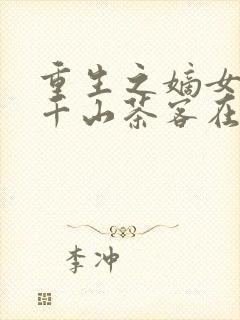 重生之嫡女
千山茶客在
李冲